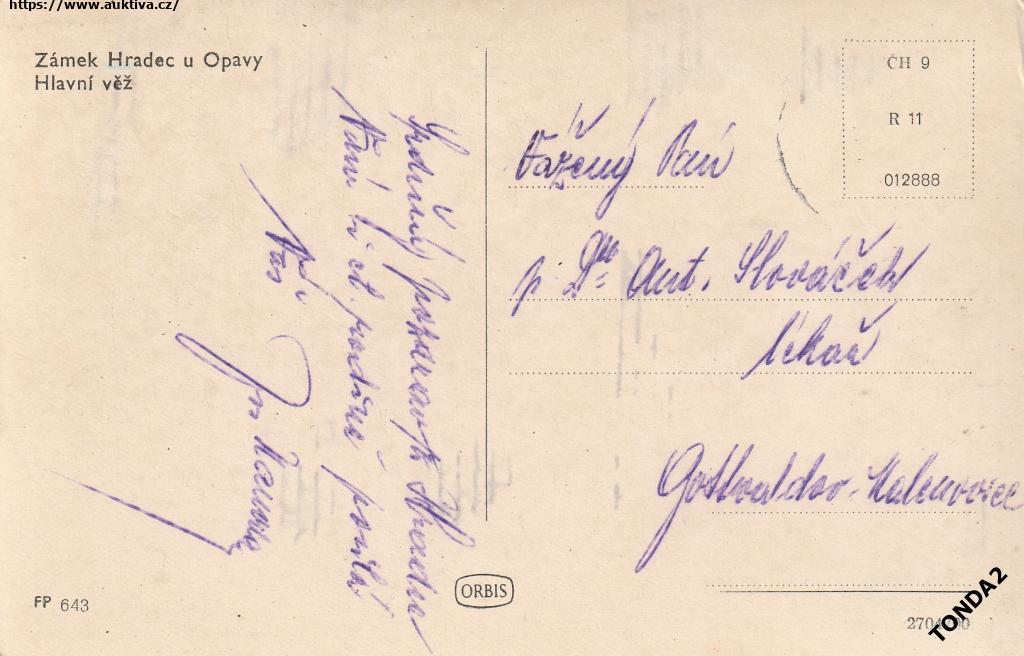 https://www.auktiva.cz/
Zámek Hradec u Opavy
Hlavní věž
ČH 9
R 11
012888
Vážený Pan
p Dr. Ant. Slováček
lékař
Gottwaldov-Malenovice
Srdečný pozdrav z Hradce
Vám i ct. rodině posílá
Váš
FP 643
ORBIS
TONDA2